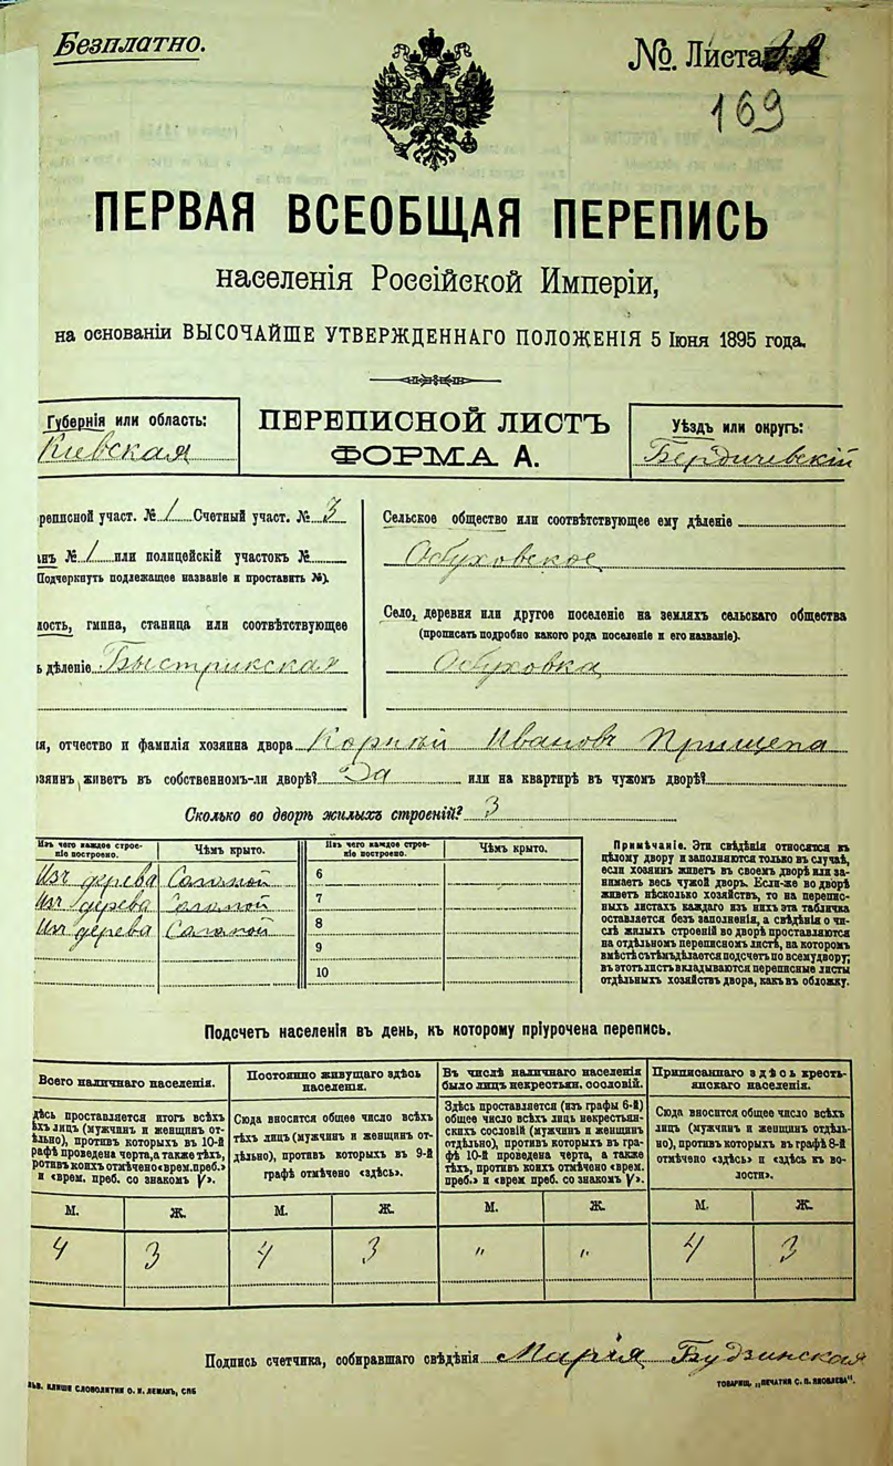 Безплатно.
№. Листа
169
ПЕРВАЯ ВСЕОБЩАЯ ПЕРЕПИСЬ
населенія Россійской Имперіи,
на основаніи ВЫСОЧАЙШЕ УТВЕРЖДЕННАГО ПОЛОЖЕНІЯ 5 Іюня 1895 года.
Губернія или область:
Кіевская
ПЕРЕПИСНОЙ ЛИСТЪ
ФОРМА А.
Уѣздъ или округъ:
Бердичевскій
реписной участ. № 1 Счетный участ. № 3
анъ № 1 или полицейскій участокъ №
Подчеркнуть подлежащее названіе и проставить №).
лость, гмина, станица или соотвѣтствующее
ь дѣленіе Быстрикская
Сельское общество или соотвѣтствующее ему дѣленіе
Обуховское
Село, деревня или другое поселеніе на земляхъ сельскаго общества
(прописать подробно какого рода поселеніе и его названіе).
Обуховка
я, отчество и фамилія хозяина двора Корнѣй Ивановъ Прищепа
озяинъ живетъ въ собственномъ-ли дворѣ? Да или на квартирѣ въ чужомъ дворѣ?
Сколько во дворѣ жилыхъ строеній? 3
Изъ чего каждое строе-
ніе построено.
Чѣмъ крыто.
Изъ чего каждое строе-
ніе построено.
Чѣмъ крыто.
Изъ дерева Соломой
Изъ дерева Соломой
Изъ дерева Соломой
6
7
8
9
10
Примѣчаніе. Эти свѣдѣнія относятся къ
цѣлому двору и заполняются только въ случаѣ,
если хозяинъ живетъ въ своемъ дворѣ или за-
нимаетъ весь чужой дворъ. Если-же во дворѣ
живетъ нѣсколько хозяйствъ, то на перепис-
ныхъ листахъ каждаго изъ нихъ эта табличка
оставляется безъ заполненія, а свѣдѣнія о чи-
слѣ жилыхъ строеній во дворѣ проставляются
на отдѣльномъ переписномъ листѣ, на которомъ
вмѣстѣ съ тѣмъ дѣлается подсчетъ по всему двору;
въ этотъ листъ вкладываются переписные листы
отдѣльныхъ хозяйствъ двора, какъ въ обложку.
Подсчетъ населенія въ день, къ которому пріурочена перепись.
Всего наличнаго населенія.
дѣсь проставляется итогъ всѣхъ
ѣхъ лицъ (мужчинъ и женщинъ от-
ѣльно), противъ которыхъ въ 10-й
рафѣ проведена черта, а также тѣхъ,
ротивъ коихъ отмѣчено «врем. преб.»
и «врем. преб. со знакомъ V».
Постоянно живущаго здѣсь
населенія.
Сюда вносится общее число всѣхъ
тѣхъ лицъ (мужчинъ и женщинъ от-
дѣльно), противъ которыхъ въ 9-й
графѣ отмѣчено «здѣсь».
Въ числѣ наличнаго населенія
было лицъ некрестьян. сословій.
Здѣсь проставляется (изъ графы 6-й)
общее число всѣхъ лицъ некрестьян-
скихъ сословій (мужчинъ и женщинъ
отдѣльно), противъ которыхъ въ гра-
фѣ 10-й проведена черта, а также
тѣхъ, противъ коихъ отмѣчено «врем.
преб.» и «врем. преб. со знакомъ V».
Приписаннаго здѣсь кресть-
янскаго населенія.
Сюда вносится общее число всѣхъ
лицъ (мужчинъ и женщинъ отдѣль-
но), противъ которыхъ въ графѣ 8-й
отмѣчено «здѣсь» и «здѣсь въ во-
лости».
М. Ж. М. Ж. М. Ж. М. Ж.
4 3 4 3 " " 4 3
Подпись счетчика, собиравшаго свѣдѣнія Марія Будзинская
льв. клише словолитни О. И. Леманъ, СПБ
ТОВАРИЩ. „ПЕЧАТНЯ С. П. ЯКОВЛЕВА".